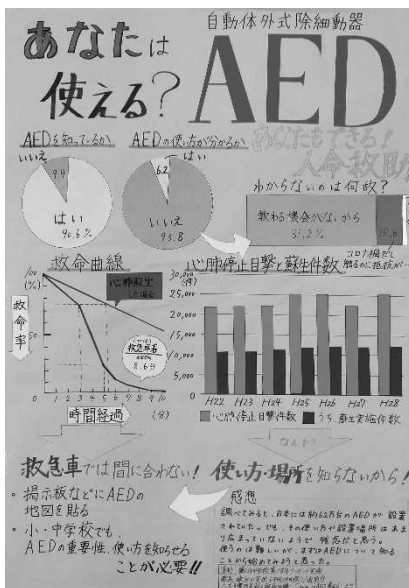 あなたは
使える?
自動体外式除細動器
AED
あなたもできる!
人命救助
AEDを知っているか
いいえ
9.4
はい
90.6%
AEDの使い方が分かるか
はい
6.2
いいえ
93.8
わからないのは何故?
教わる機会がないから
15.8
救命曲線
100
(%)
50
救命率
心肺蘇生
救急車着
8.6分
0 1 2 3 4 5 6 7 8 9 10
(分)
時間経過
心肺停止目撃と蘇生件数
30,000
(件)
25,000
20,000
15,000
10,000
5,000
H22 H23 H24 H25 H26 H27 H28
心肺停止目撃件数
うち蘇生実施件数
なんで?
救急車では間に合わない!
・掲示板などにAEDの
地図を貼る
・小・中学校でも、
AEDの重要性、使い方を知らせる
ことが必要!!
使い方・場所を知らないから!
感想
調べてみると、日本には約62万台のAEDが設置
されていた。でも、その使い方や設置場所はあま
り広まっていないようで残念だと思う。
使うのは難しいが、まずはAEDについて知る
ことから始めてみようと思った。